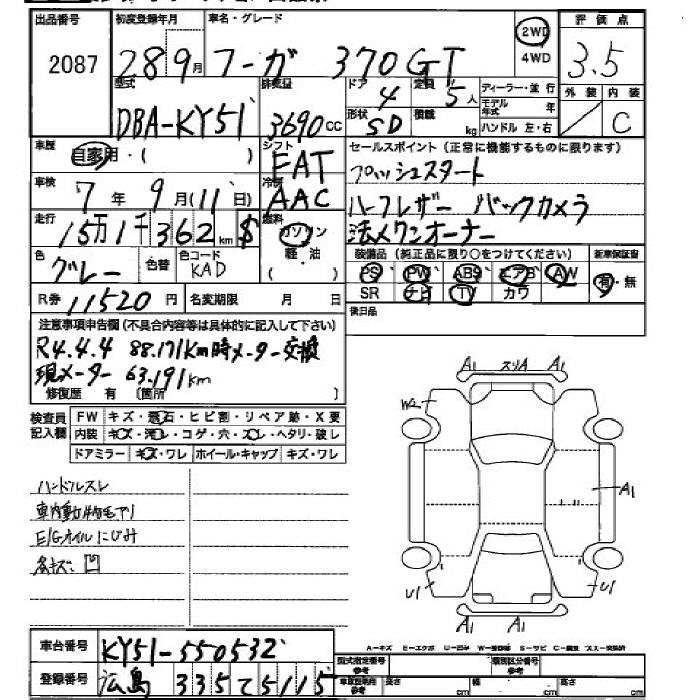 出品番号 初度登録年月 車名・グレード 評価点
2087 28年9月 フーガ 370GT 2WD 4WD 3.5
型式 排気量 ドア 定員 ディーラー・並行 外装 内装
DBA-KY51 3690cc 4 5人 モデル年式 年 / C
形状 SD 積載 kg ハンドル 左・右
車歴 自家用・( ) シフト FAT セールスポイント(正常に機能するものに限ります)
車検 7年9月(11日) 冷房 AAC プッシュスタート
ハーフレザー バックカメラ
走行 15万1千362km $ 燃料 ガソリン 軽・油 法人ワンオーナー
色 グレー 色替 色コード KAD 装備品(純正品に限り○をつけてください) 新車保証書
PS PW ABS エアB AW 有・無
R券 11520円 名変期限 月 日 SR ナビ TV カワ
後日品
注意事項申告欄(不具合内容等は具体的に記入して下さい)
R4.4.4 88.171km時メーター交換
現メーター 63.191km
修復歴 有 〔箇所 〕
検査員記入欄 FW キズ・飛石・ヒビ割・リペア跡・X要
内装 キズ・汚レ・コゲ・穴・スレ・ヘタリ・破レ
ドアミラー キズ・ワレ ホイール・キャップ キズ・ワレ
A1 スリA A1
W2
A1
U1 U1
A1 A1
ハンドルスレ
車内動物毛アリ
E/Gオイルにじみ
各キズ凹
A-キズ E-エクボ U-凹み W-補修跡 S-サビ C-腐食 XX-交換済
車台番号 KY51-550532
型式指定番号 参考 類別区分番号 参考
登録番号 広島 335 て 5115
車庫証明用 参考 長さ cm 幅 cm 高さ cm